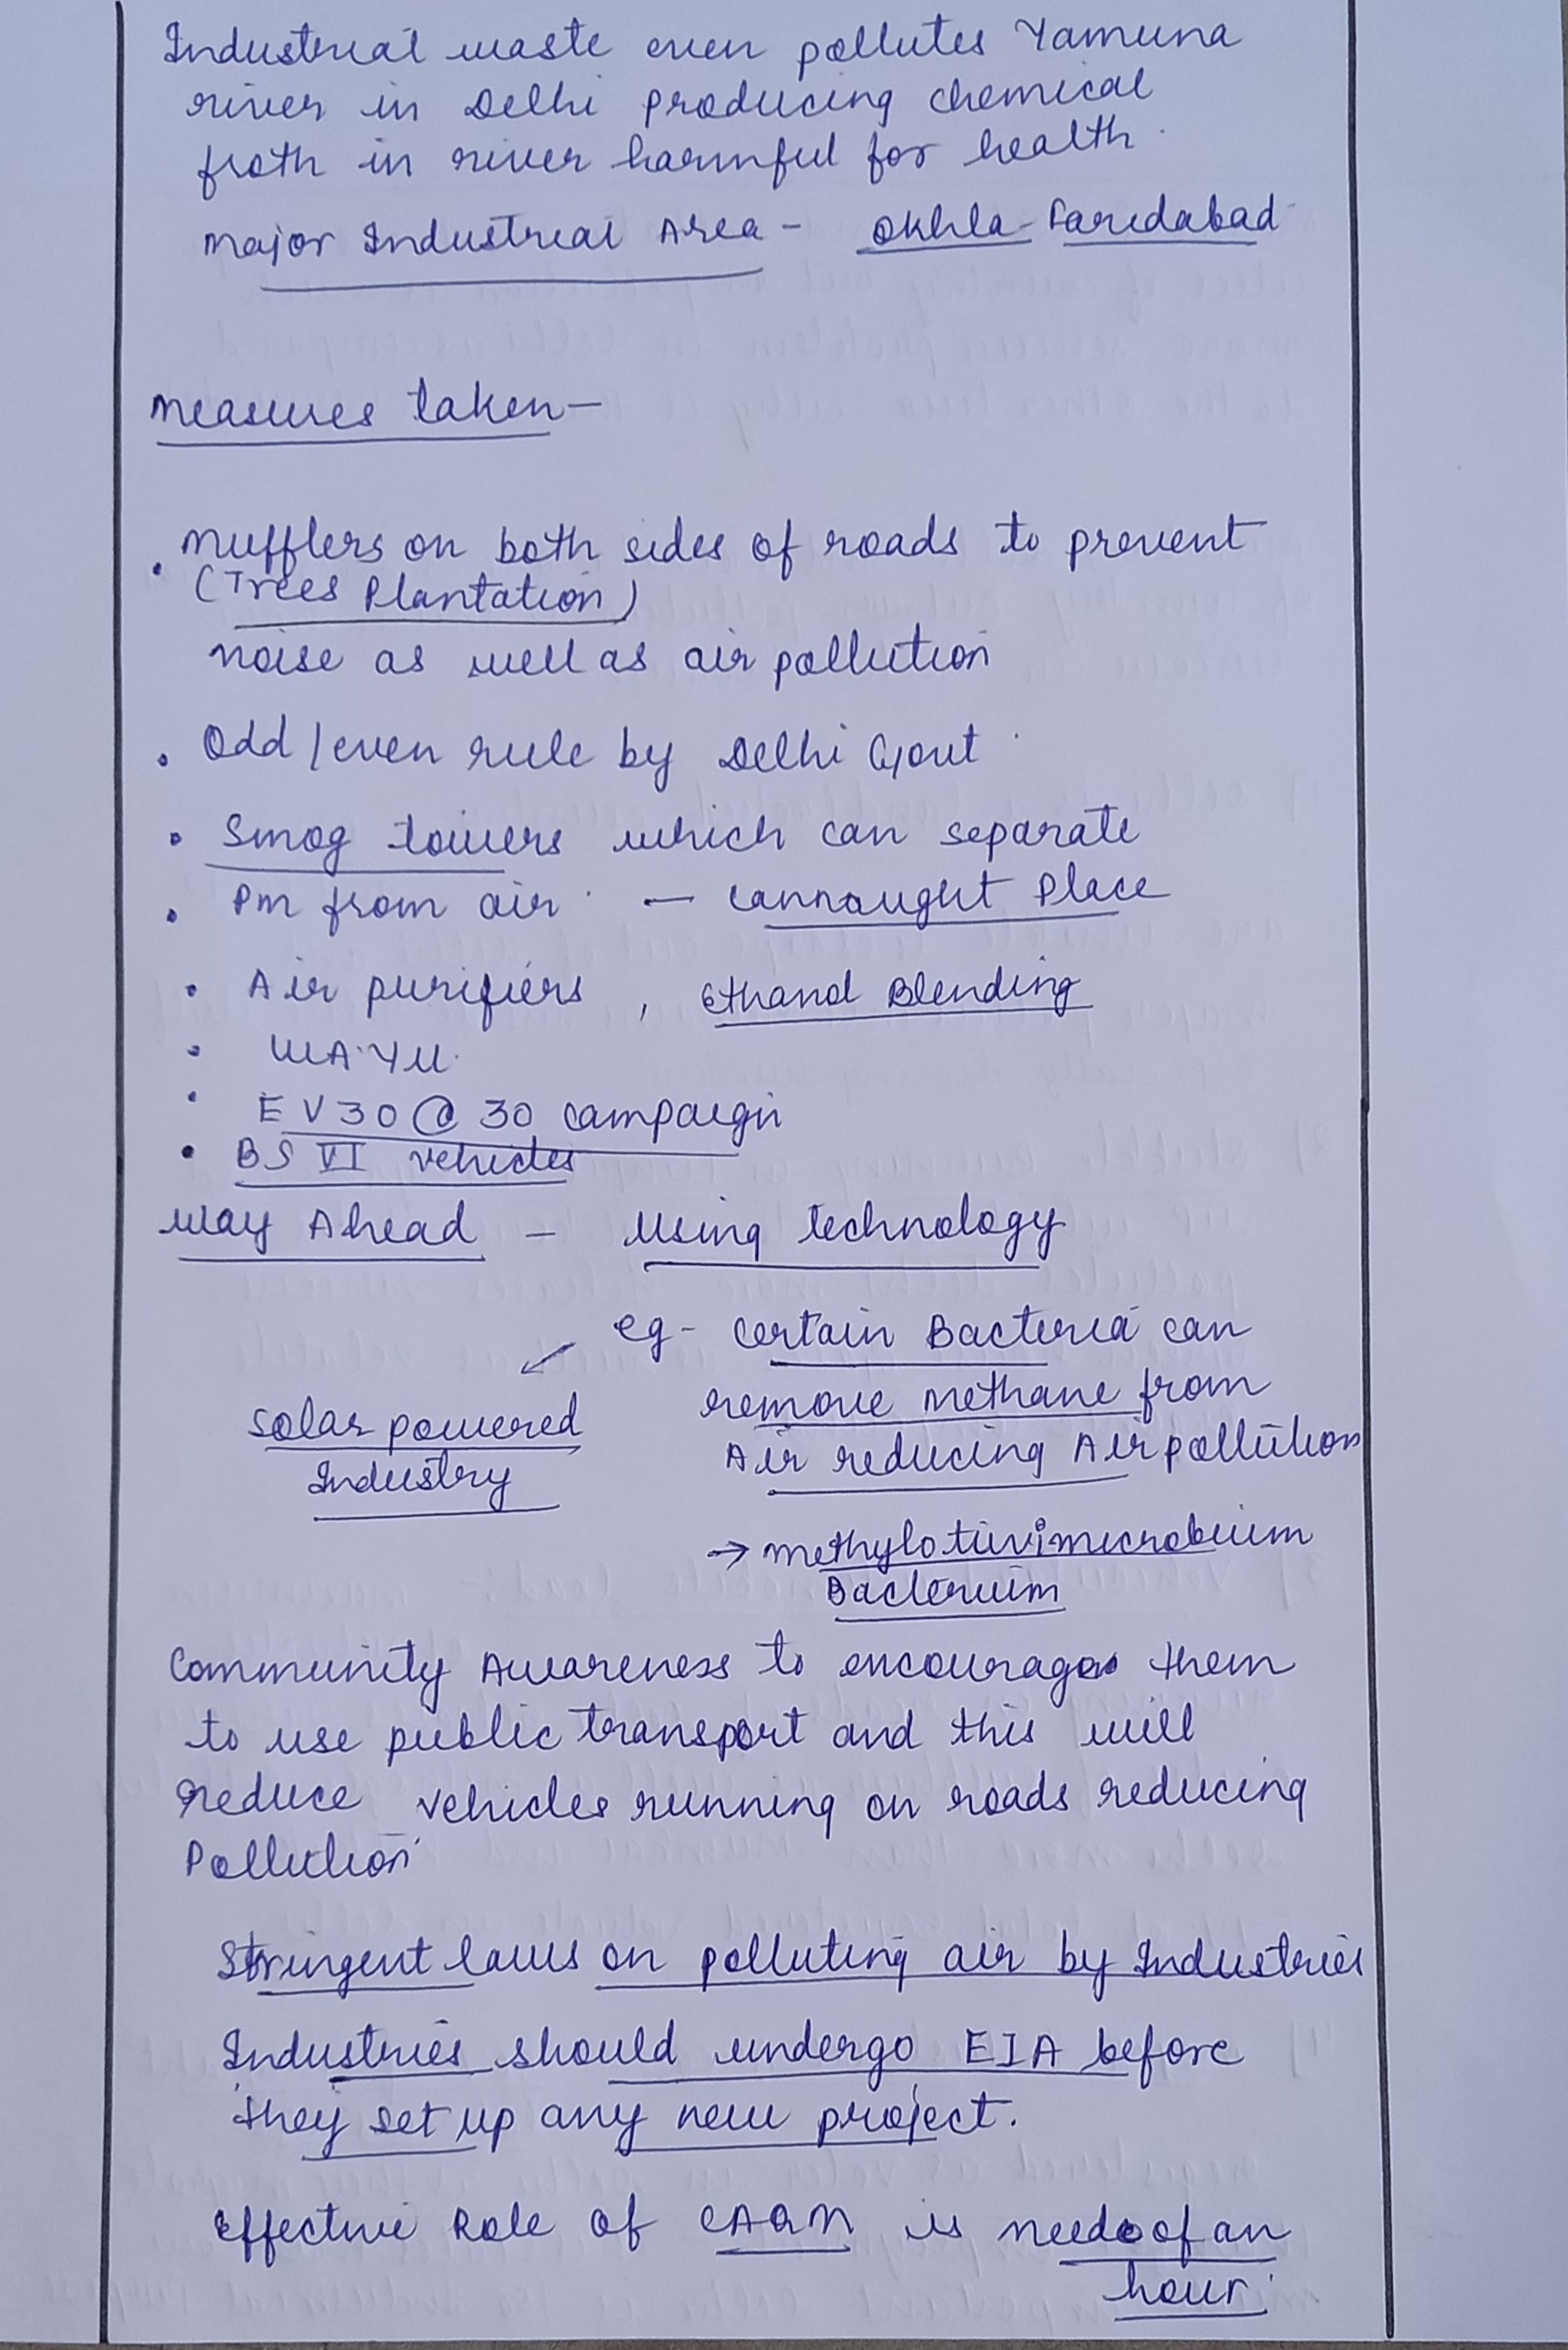 Industrial waste even pollutes Yamuna
river in Delhi producing chemical
froth in river harmful for health.
Major Industrial Area - Okhla-Faridabad
Measures taken-
• Mufflers on both sides of roads to prevent
(Trees Plantation)
noise as well as air pollution
• Odd/even rule by Delhi Govt.
• Smog towers which can separate
• Pm from air. - Cannaught Place
• Air purifiers, Ethanol Blending
• WAYU.
• EV30@30 campaign
• BS VI vehicles
Way Ahead - Using technology
eg- Certain Bacteria can
remove methane from
Solar powered
Air reducing Air pollution
Industry
→ methylotuvimicrobium
Bacterium
Community Awareness to encourage them
to use public transport and this will
reduce vehicles running on roads reducing
Pollution.
Stringent laws on polluting air by Industries
Industries should undergo EIA before
they set up any new project.
Effective Role of CAQM is need of an
hour.